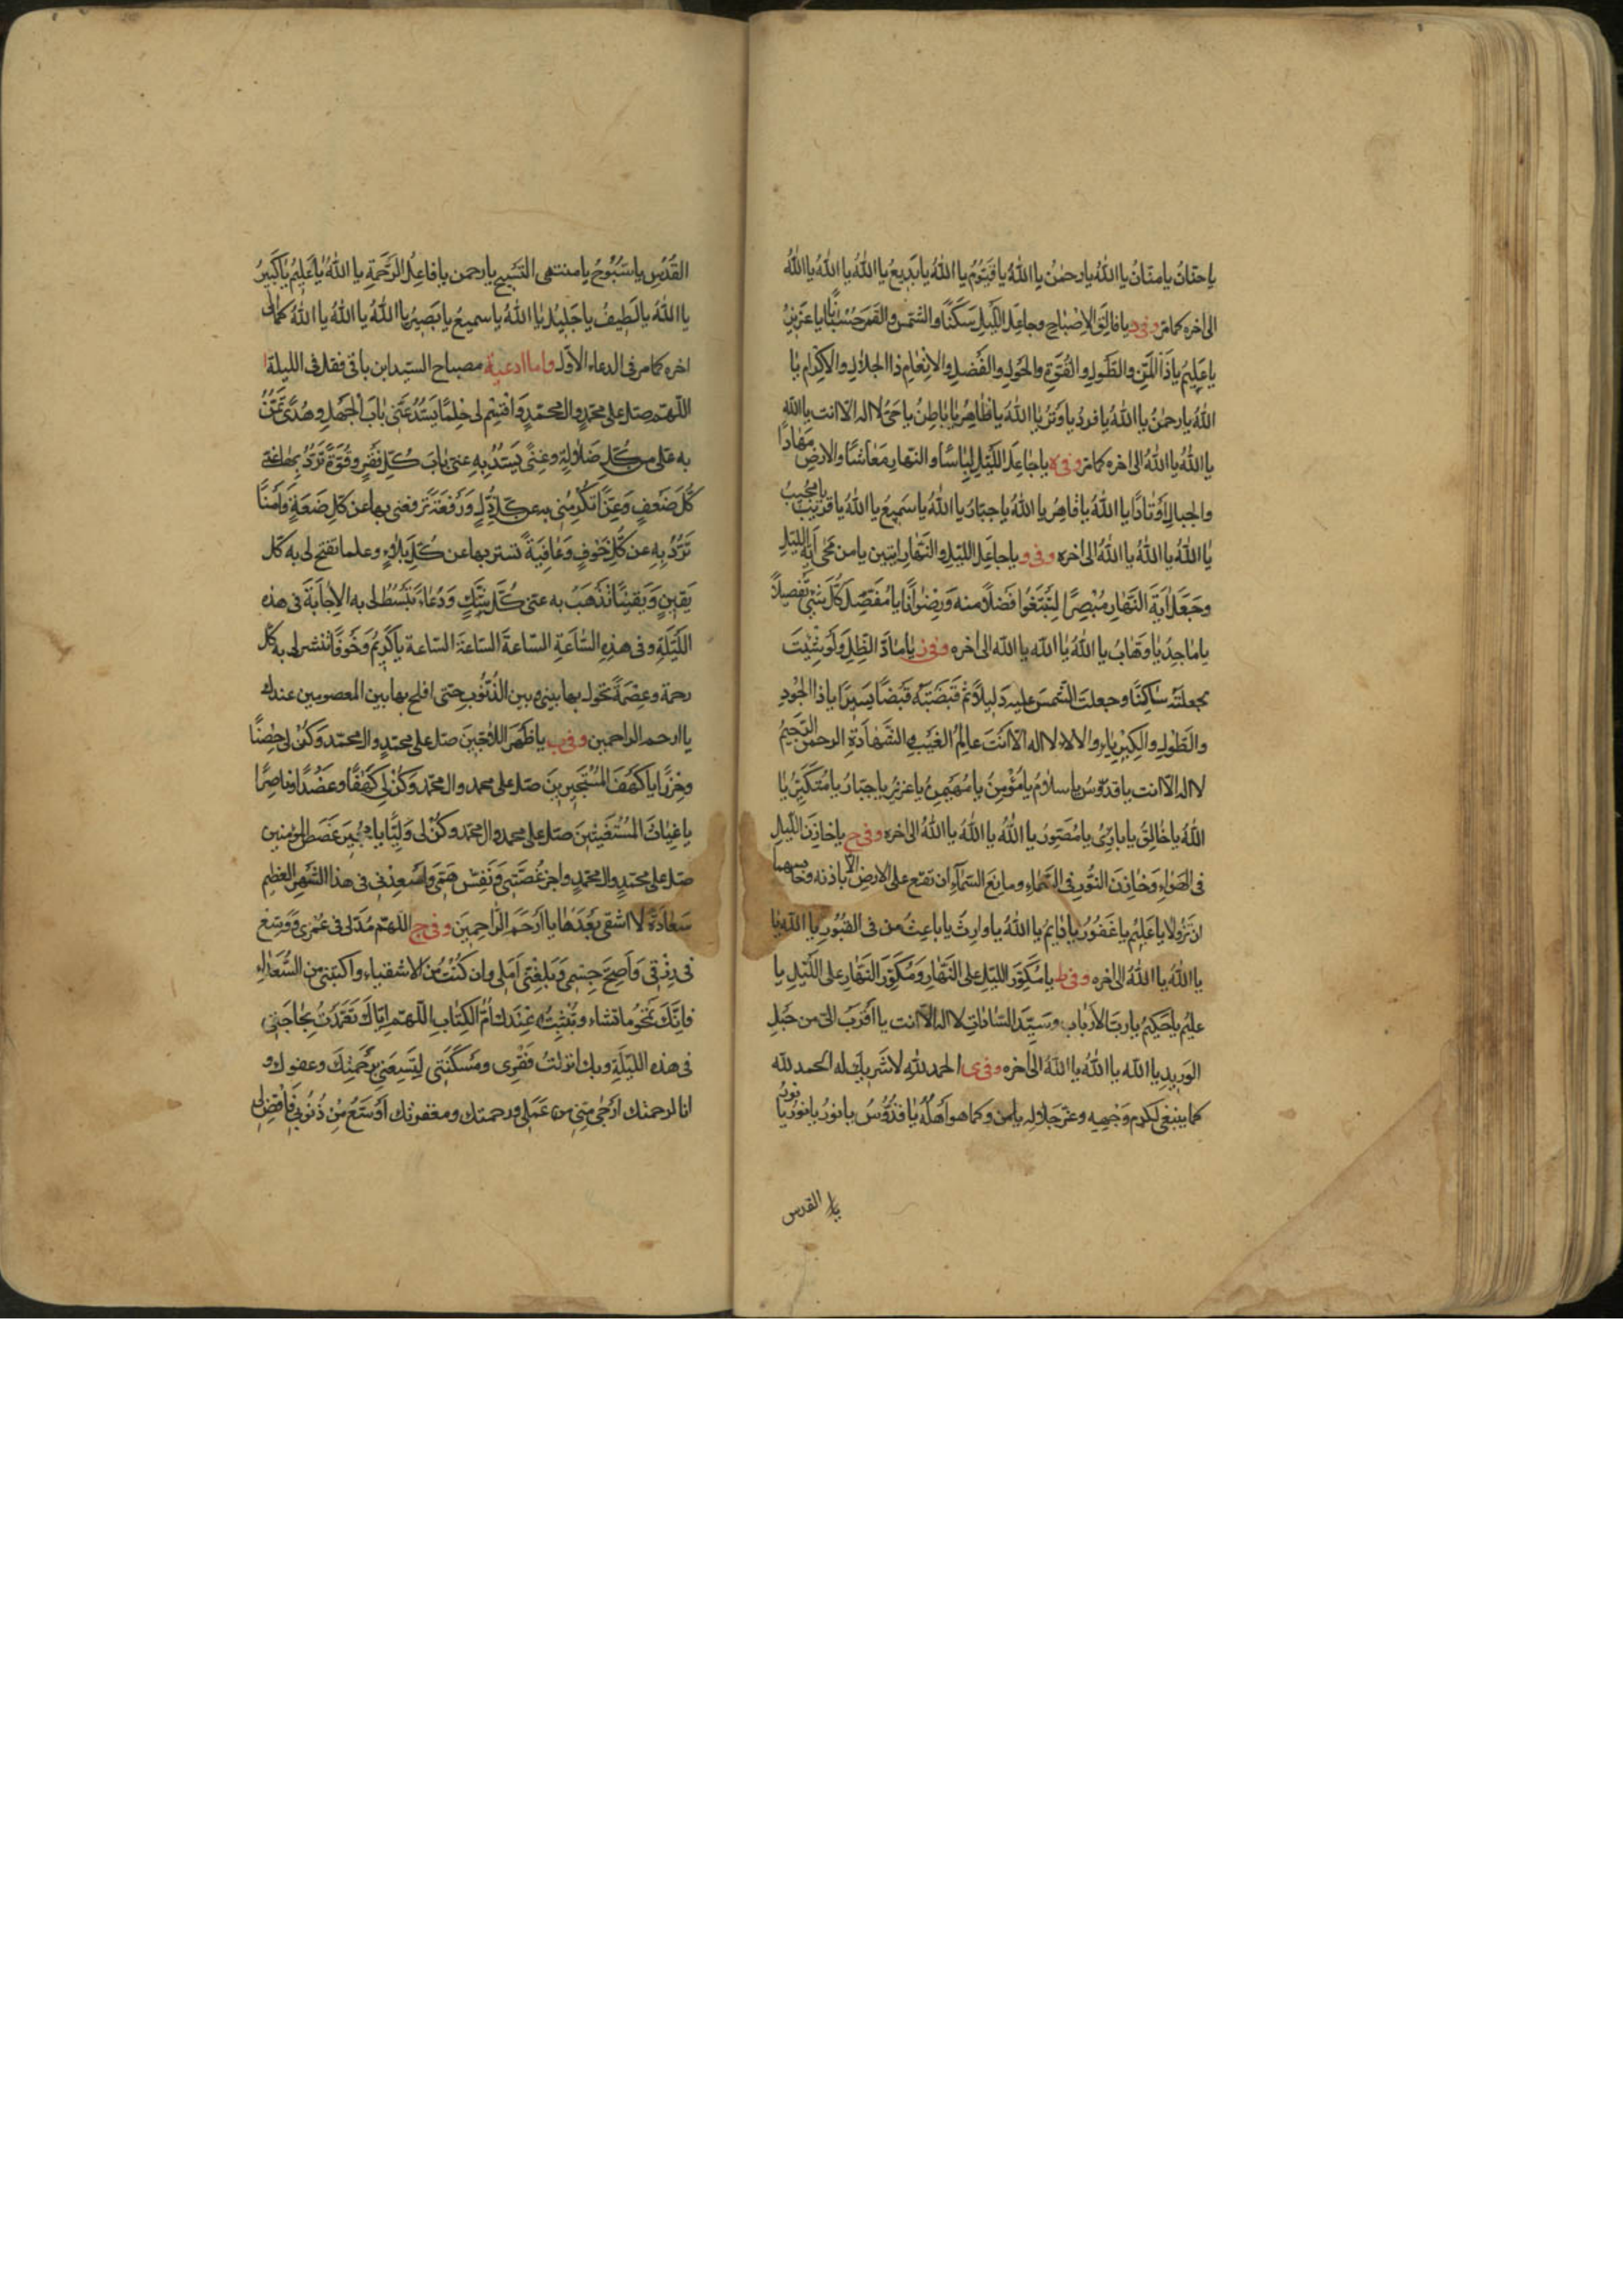 يا حنّانُ يا منّانُ يا اللهُ يا رحمٰنُ يا اللهُ يا قيّومُ يا اللهُ يا بديعُ يا اللهُ يا اللهُ يا اللهُ
الى اخره كما مرّ وفى د يا فالِقَ الاِصْباحِ وجاعِلَ اللّيلِ سَكَنًا والشّمس والقمر حُسْبانًا يا عزيزُ
يا عليمُ يا ذَا المَنِّ والطَّولِ والقُوّةِ والحَولِ والفَضلِ والاِنْعامِ ذا الجلالِ والاكرامِ يا
اللهُ يا رحمٰنُ يا اللهُ يا فردُ يا وَترُ يا اللهُ يا ظاهِرُ يا باطِنُ يا حَىُّ لا اله الّا انت يا الله
يا اللهُ يا اللهُ الى اخره كما مرّ وفى ه يا جاعِلَ اللّيلِ لِباسًا والنّهار مَعاشًا والارض مِهادًا
والجبالِ اَوْتادًا يا اللهُ يا قاهِرُ يا اللهُ يا جبّارُ يا اللهُ يا سميعُ يا اللهُ يا قريبُ يا مجيبُ
يا اللهُ يا اللهُ يا اللهُ الى اخره وفى و يا جاعِلَ الليلِ والنّهارِ ايتين يا من محى ايَةَ الليلِ
وجَعَلَ ايَةَ النّهارِ مُبْصِرًا لِتَبْتَغُوا فَضلًا منه وَرِضوانًا يا مُفَصِّلَ كُلِّ شئٍ تفصيلًا
يا ماجِدُ يا وَهّابُ يا اللهُ يا اللهُ يا الله يا الله الى اخره وفى ز يا مادَّ الظِّلِّ ولَو شِئْتَ
لجعلتَهُ ساكِنًا وجعلتَ الشّمسَ عليه دَليلًا ثمّ قَبَضْتَهُ قَبْضًا يَسيرًا يا ذا الجُودِ
والطَّولِ والكِبرياءِ والآلاءِ لا اله الّا اَنتَ عالِمُ الغَيْبِ والشّهادةِ الرحمنُ الرّحيمُ
لا اله الّا انت يا قدّوسُ يا سلامُ يا مُؤْمِنُ يا مُهَيمِنُ يا عزيزُ يا جبّارُ يا مُتَكبِّرُ يا
اللهُ يا خالِقُ يا بارِئُ يا مُصَوِّرُ يا اللهُ يا اللهُ يا اللهُ الى اخره وفى ح يا خازِنَ اللّيلِ
فى الهَواءِ وَخازِنَ النُّورِ فى السَّماءِ ومانِعَ السّماءِ ان تقع على الارضِ الّا باذنه وحابسهما
ان تزولا يا عليمُ يا غفورُ يا دائِمُ يا اللهُ يا وارِثُ يا باعِثُ من فى القُبُورِ يا الله يا
يا اللهُ يا اللهُ الى اخره وفى ط يا مُكَوِّرَ الليلِ على النّهارِ ومُكَوِّرَ النّهارِ على اللّيلِ يا
عليمُ يا حَكيمُ يا ربَّ الارْبابِ وسيّدَ السّاداتِ لا اله الّا انت يا اَقرَبَ الىّ من حَبْلِ
الوريدِ يا الله يا اللهُ يا اللهُ الى اخره وفى ى الحمد للهِ لا شَريكَ له الحمد لله
كما ينبغى لكرمِ وَجْهِهِ وعزِّ جَلالِهِ وكما هو اَهْلُهُ يا قُدُّوسُ يا نورُ يا نورُ يا نورَ
يا القدس
القُدُسِ يا سُبُّوحُ يا منتهى التّسبيحِ يا رحمن يا فاعِلَ الرّحمةِ يا اللهُ يا عَليمُ يا كبيرُ
يا اللهُ يا لَطيفُ يا جَليلُ يا اللهُ يا سميعُ يا بَصيرُ يا اللهُ يا اللهُ يا اللهُ كما الى
اخره كما مر فى الدعاء الاوّل واما ادعية مصباح السيّد ابن باقى فقل فى الليلة ا
اللّهمّ صلِّ على محمّدٍ وال محمّدٍ وَاقْسِم لى حِلمًا يَسُدُّ عنّى بابَ الجَهلِ وهُدًى تَمُنُّ
به علىّ من كلِّ ضَلالةٍ وغِنًى يَسُدُّ بِهِ عنّى بابَ كلِّ فَقْرٍ وقُوّةً تَرُدُّ بِها عنّى
كُلَّ ضَعفٍ وَعِزًّا تُكرِمُنى به عن كلِّ ذُلٍّ وَرَفعَةً تَرفعنى بها عن كلِّ ضَعَةٍ وَاَمنًا
تَرُدُّ بِهِ عن كُلَّ خَوفٍ وَعافِيَةً تستر بها عن كُلِّ بلاءٍ وعلما تفتح لى به كلّ
يَقينٍ وَيَقينًا تُذْهَبُ به عنّى كُلَّ شَكٍّ ودُعاءً تَبْسُطُ لى به الاِجابَةَ فى هذه
اللّيلَةِ وفى هذِهِ السّاعَةِ السّاعةَ السّاعةَ السّاعةَ يا كَريمُ وَخَوفًا تنشر لى به كلّ
رحمة وعِصْمَةً تحول بها بينى وبين الذُّنُوبِ حتّى افلح بها بين المعصومين عندك
يا ارحم الراحمين وفى ب يا ظَهرَ اللّاجينَ صلّ على محمّدٍ وال محمّد وَكُن لى حِصْنًا
وحِرْزًا يا كَهْفَ المُسْتَجيرينَ صلّ على محمد وال محمّد وكُن لى كَهْفًا وعَضُدًا وناصِرًا
يا غياثَ المُسْتَغيثينَ صلّ على محمد وال محمّد وكُن لى وَلِيًّا يا مُجيرَ غُصَصِ المؤمنين
صلّ على محمّدٍ وال محمّدٍ واجر غُصَّتى وَنَفِّس هَمّى وَاَسعِدنى فى هذا الشّهرِ العظيمِ
سَعادَةً لا اشقى بَعدَها يا اَرحَمَ الرّاحمينَ وفى ج اللّهمّ مُدَّ لى فى عُمرى وَوَسِّع
فى رِزْقى وَاَصِحَّ جِسْمى وَبَلِّغنى اَمَلى وان كُنْتُ من الاشقياءِ واكتبنى من السُّعَداءِ
فاِنّكَ تَمحُو ما تشاء وتُثبِتُ وعِنْدَك اُمُّ الكِتابِ اللّهمّ ايّاك تَعَمَّدتُ بِحاجَتى
فى هذه الليلةِ وبك انزلتُ فَقْرى ومَسْكَنَتى لِتَسِعَنى رَحْمَتُكَ وعفوك و
انا لرحمتك اَرْجى منّى من عَمَلى ورحمتك ومغفرتك اَوسَعُ مِن ذُنُوبى فَاقْضِ لى